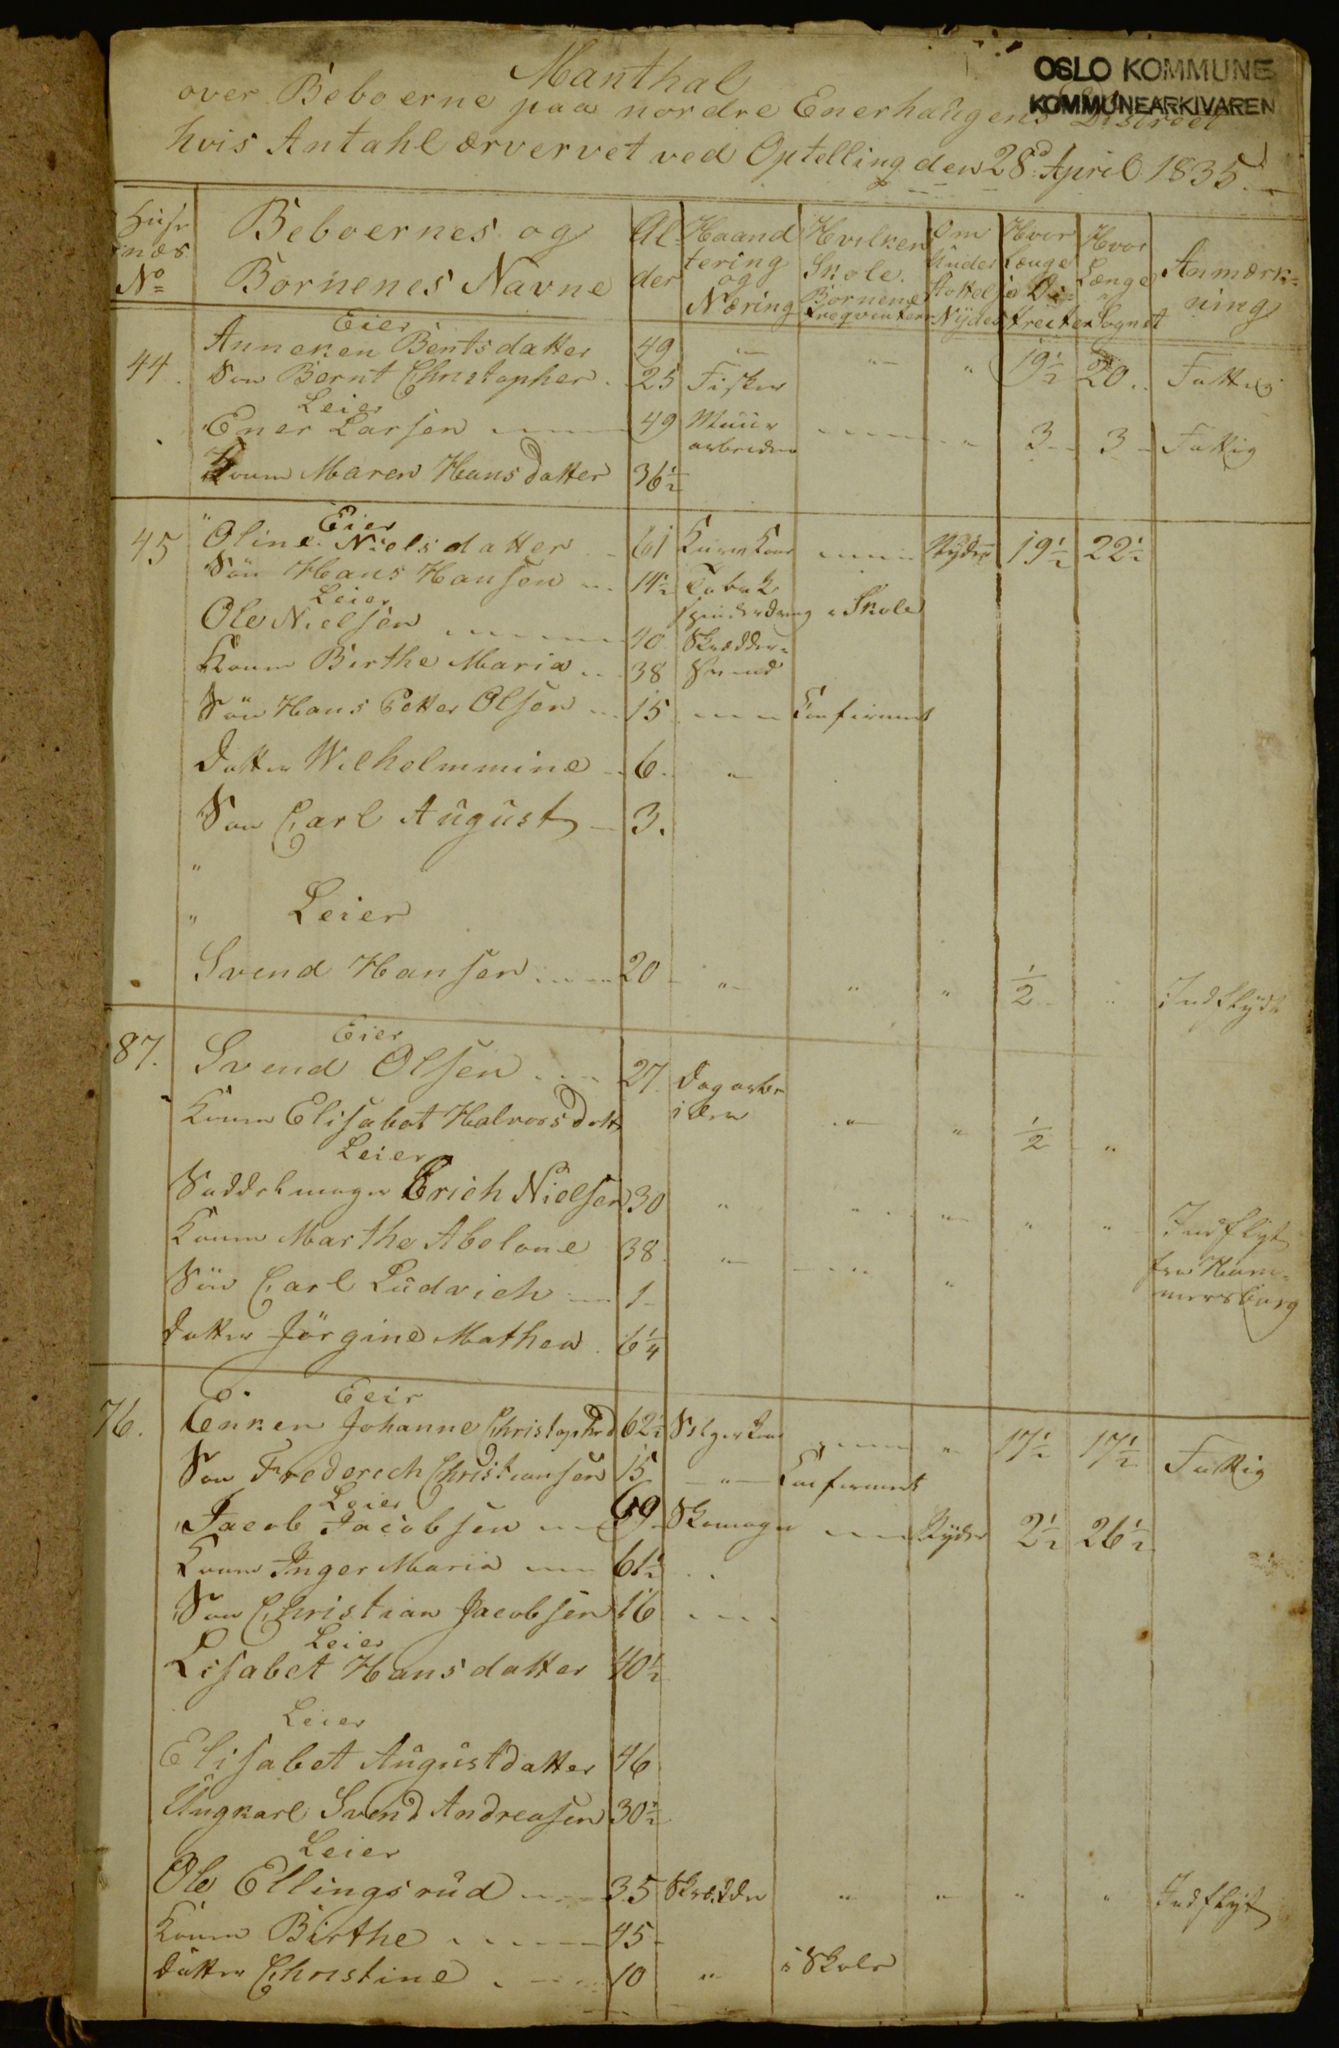 Manthal
over Beboerne paa nordre Enerhaugens District
hvis Antahl ærvervet ved Optelling den 28d April 1835.
OSLO KOMMUNE
KOMMUNEARKIVAREN
Husenes No Beboernes og Børnenes Navne Alder Haandtering og Næring Hvilken Skole Børnene freqventere Om Under støttelse Nydes Hvor Længe i Districtet Hvor Længe i Sognet Anmærkning
Eier
Anneken Bentsdatter 49 " " " 19½ 20 Fattig
44. Søn Bernt Christopher. 25 Fisker
Leier
Ener Larsen 49 Muur arbeider " 3 3 Fattig
Kone Maren Hansdatter 36½
Eier
45 Oline Nielsdatter 61 Nyder 19½ 22½
Søn Hans Hansen 14½ Tobak spinderdreng i Skole
Leier
Ole Nielsen 40 Skrædder-
Kone Birthe Maria 38 Svend
Søn Hans Petter Olsen 15 Confirmert
Datter Wilhelmmine 6. "
Søn Carl August 3.
"
" Leier
Svend Hansen 20 " " " ½ " Indflydt
Eier
87. Svend Olsen 27. Dagarbe
Kone Elisabet Halvorsdatt ider " " ½ "
Leier
Saddelmager Erich Nielsen 30 " " " " " Indflyt
Kone Marthe Abelone 38 " " " fra Ham-
Søn Carl Ludvich 1 mersborg
Datter Jørgine Mathea 6¼
Eeir
76. Enken Johanne Christophd 62½ Selgerkone " 17½ 17½ Fattig
Søn Frederich Christiansen 15 " Confirmert
Leier
Jacob Jacobsen 69 Skomager Nyder 2½ 26½
Kone Inger Maria 61½
Søn Christian Jacobsen 16
Leier
Lisabet Hansdatter 40½
Leier
Elisabet Augustdatter 46
Ungkarl Svend Andreasen 30½
Leier
Ole Ellingsrud 35 Skrædder " " " " Indflyt
Kone Birthe 45
Datter Christine 10 " i Skole